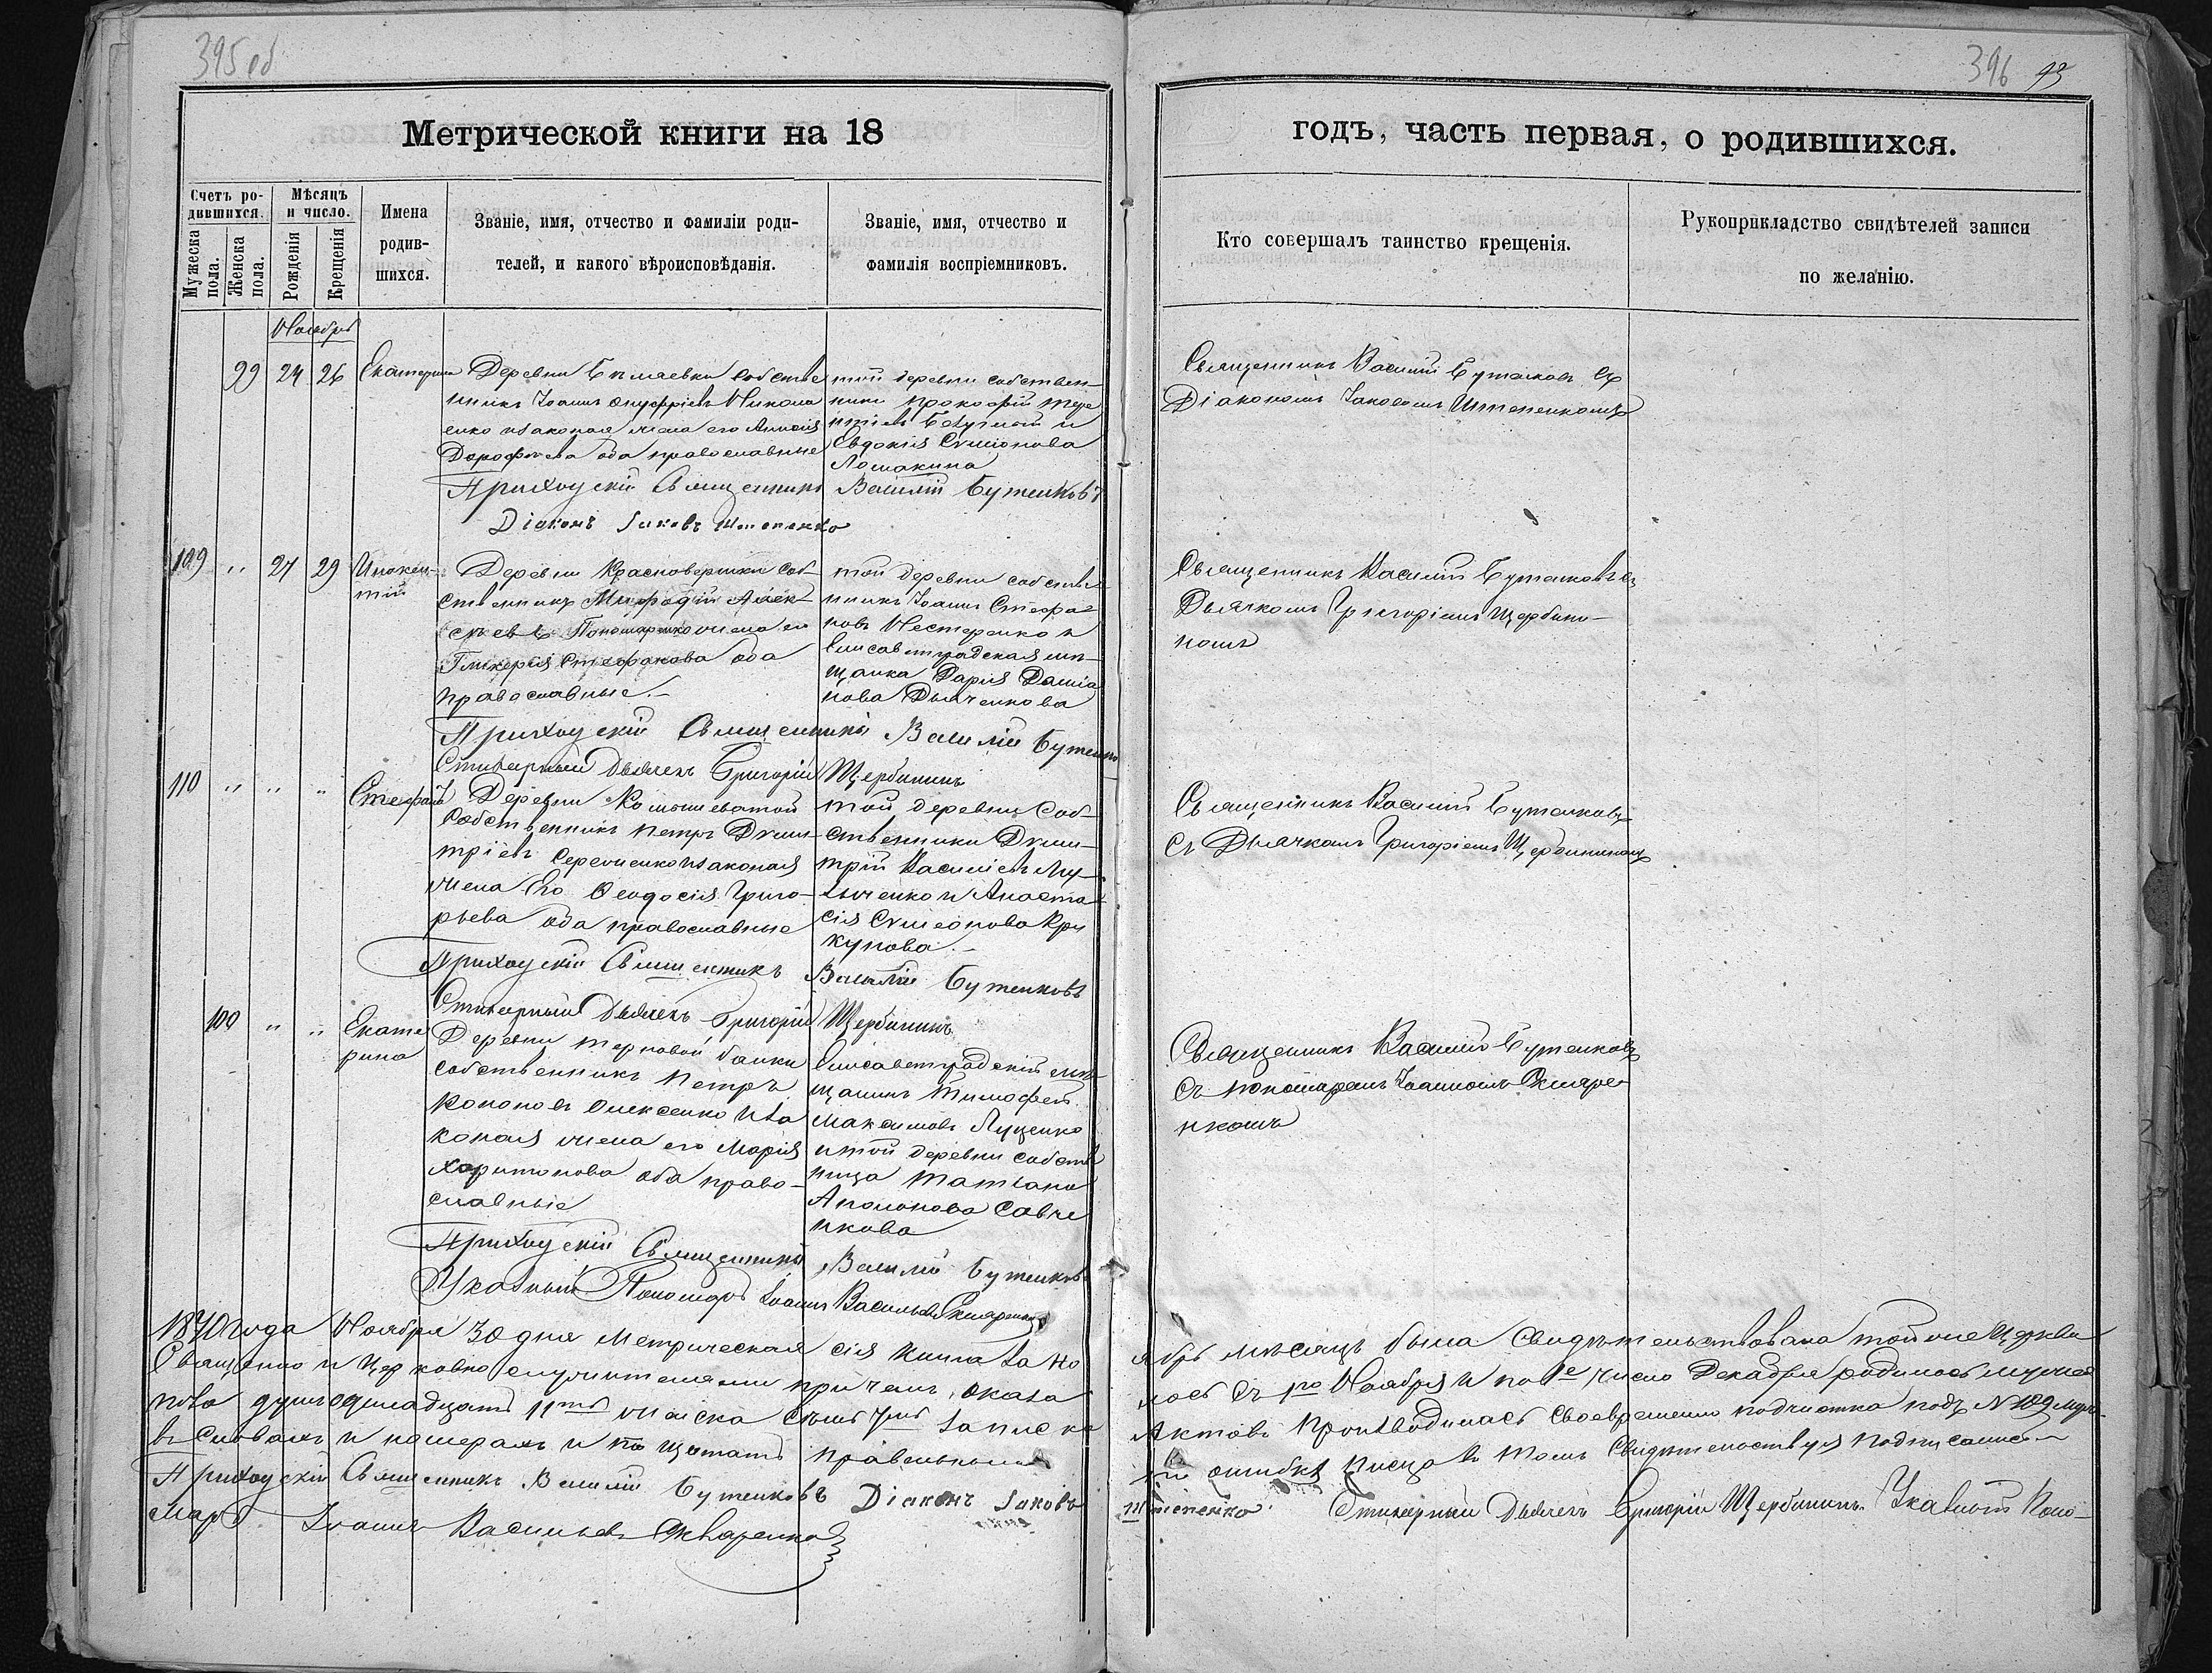 395 об
396
93
Метрической книги на 18
годъ, часть первая, о родившихся.
Счетъ ро-
дившихся.
Мужеска пола.
Женска пола.
Мѣсяцъ
и число.
Рожденія
Крещенія
Имена
родив-
шихся.
Званіе, имя, отчество и фамиліи роди-
телей, и какого вѣроисповѣданія.
Званіе, имя, отчество и
фамилія воспріемниковъ.
Кто совершалъ таинство крещенія.
Рукоприкладство свидѣтелей записи
по желанію.
Ноябрь
99 24 26 Екатерина
Деревни собстве
нникъ Іоаннъ Онуфріевъ Никола
енко и законая жена его
Дорофѣева оба православные
той деревни собствен-
ники Прокофій Тере
нтіевъ и
Евдокія Сѵмеонова
Ломакина
Священникъ Василій Бутенковъ съ
Діакономъ Іаковомъ
Приходскій Священникъ Василій Бутенковъ
Діаконъ Іаковъ
109 " 27 29 Инокен-
тій
Деревни Красновершки соб-
ственникъ Меѳодій Алек-
сѣевъ Пономаренко жена его
Гликерія Стефанова оба
православные.
той деревни собстве
нникъ Іоаннъ Стефа-
новъ Нестеренко и
Елисаветградская мѣ-
щанка Дарія Даміа
нова Дьяченкова
Священникъ Василій Бутенковъ съ
Дьячкомъ Григоріемъ Щербини-
номъ
Приходскій Священникъ Василій Бутенко
Стихарный Дьячекъ Григорій Щербининъ
110 " " " Стефанъ
Деревни Комышеватой
Собственникъ Петръ Дими-
тріевъ и законая
жена Его Ѳеодосія Григо-
рьева оба православные
той деревни Соб-
ственники Дими-
трій Василіевъ
и Анаста
сія Сѵмеонова Кри
кунова.
Священникъ Василій Бутенковъ
съ Дьячкомъ Григоріемъ Щербининомъ
Приходскій Священникъ Василій Бутенковъ
Стихарный Дьячекъ Григорій Щербининъ
100 " " Екате
рина
Деревни Терновой балки
собственникъ Петръ
Кононовъ Олексенко и за
коная жена его Марія
Харитонова оба право-
славные
Елисаветградскій мѣ
щанинъ Тимофей
Максимовъ Луценко
и той деревни собств
ница Татіана
Савче
нкова
Священникъ Василій Бутенковъ
съ пономаремъ Іоанномъ
нкомъ
Приходскій Священникъ Василій Бутенковъ
Указный Пономарь Іоаннъ Васильевъ
1870 года Ноября 30 дня Метрическая сія книга за Но
ябрь мѣсяцъ была Свидѣтельствована той же Церкви
Священно и Церковно служителями причемъ оказа
лось съ 1го Ноября и по 1е число Декабря родилось мужеск
пола душъ одинадцать 11ть женска семь 7мь записка
Актовъ производилась своевременно подчистка подъ № 109 муж
въ словахъ и номерахъ и по щетамъ правельна
ошибкѣ писца въ томъ Свидѣтельствуя подписались
Приходскій Священникъ Василій Бутенковъ Діаконъ Іаковъ
Стихарный Дьячекъ Григорій Щербининъ. Указный Поно-
марь Іоаннъ Васильевъ